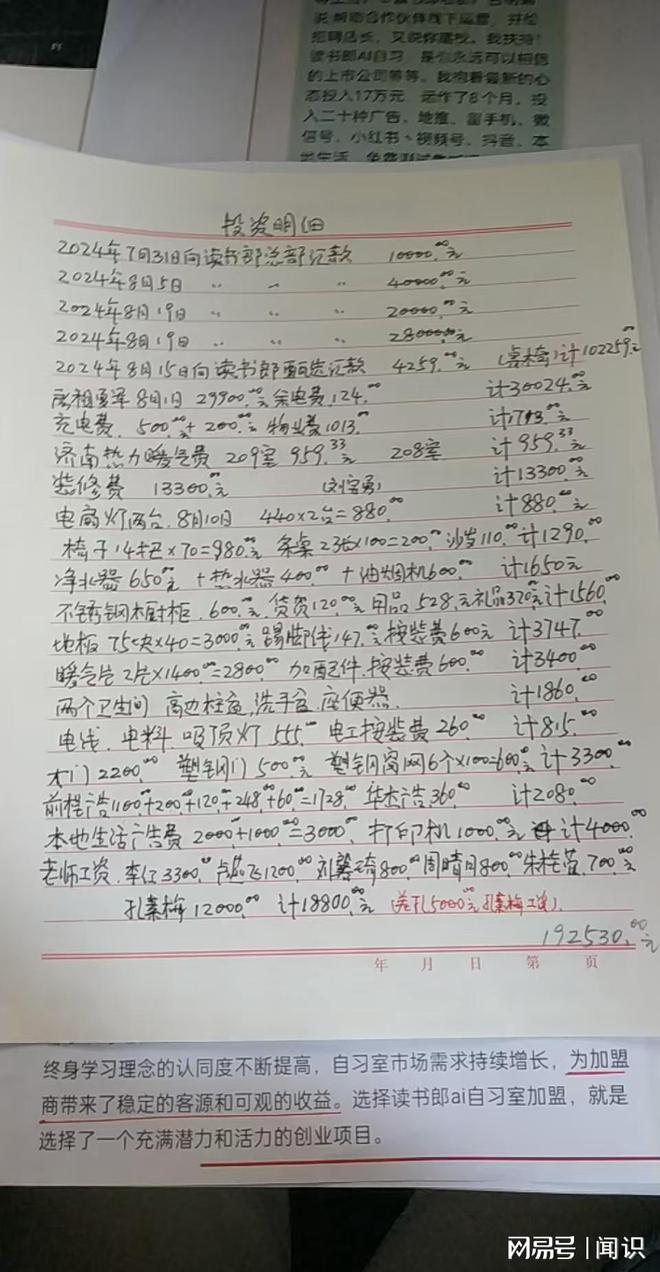 说帮助合作伙伴线下运营，并给
招聘店长，又说你建校，我扶持！
读书郎AI自习，是你永远可以相信
的上市公司等等。我抱着最新的心
态投入17万元，运作了8个月，投
入二十种广告、地推、留手机、微
信号、小红书、视频号、抖音、本
投资明细
2024年7月31日向读书郎总部汇款 10000.00元
2024年8月5日 〃 〃 〃 40000.00元
2024年8月19日 〃 〃 〃 20000.00元
2024年8月19日 〃 〃 〃 28000.00元
2024年8月15日向读书郎甄选汇款 4259.00元 (桌椅)计102259.00元
房租夏泽8月1日 29900.00元余电费124.00 计30024.00元
充电费.500.00元+200.00元物业费1013.00 计1713.00元
济南热力暖气费 209室 959.33元 208室 计959.33元
装修费 13300.00元 计13300.00元
电扇灯两台.8月10日 440×2台=880.00 计880.00元
椅子14把×70=980.00元 条桌2张×100=200.00沙发110.00计1290.00
净水器650元+热水器400.00+油烟机600.00 计1650元
不锈钢橱柜.600.元货架120.00元用品528.元礼品320元计1560.00
地板75块×40=3000.00元踢脚线147.元按装费600元 计3747.00
暖气片2片×1400.00=2800.00 加配件.按装费600.00 计3400.00
两个卫生间 高边柱盆,洗手盆.座便器. 计1860.00
电线.电料.吸顶灯555.00 电工按装费260.00 计815.00
木门2200.00 塑钢门500.元 塑钢窗网6个×100=600.元计3300.00
前程广告1100.00+200.00+120.00+248.00+60.00=1728.00 华杰广告360.00 计2080.00
本地生活广告费2000.00+1000.00=3000.00打印机1000.00元 计4000.00
老师工资.李红3300.00 1200.00 刘馨琦800.00周晴月800.00朱桂萱.700.00元
孔素梅12000.00 计18800.00元 (差孔5000元孔素梅工资)
192530.00元
年 月 日 第 页
终身学习理念的认同度不断提高，自习室市场需求持续增长，为加盟
商带来了稳定的客源和可观的收益。选择读书郎ai自习室加盟，就是
选择了一个充满潜力和活力的创业项目。
网易号 | 闻识